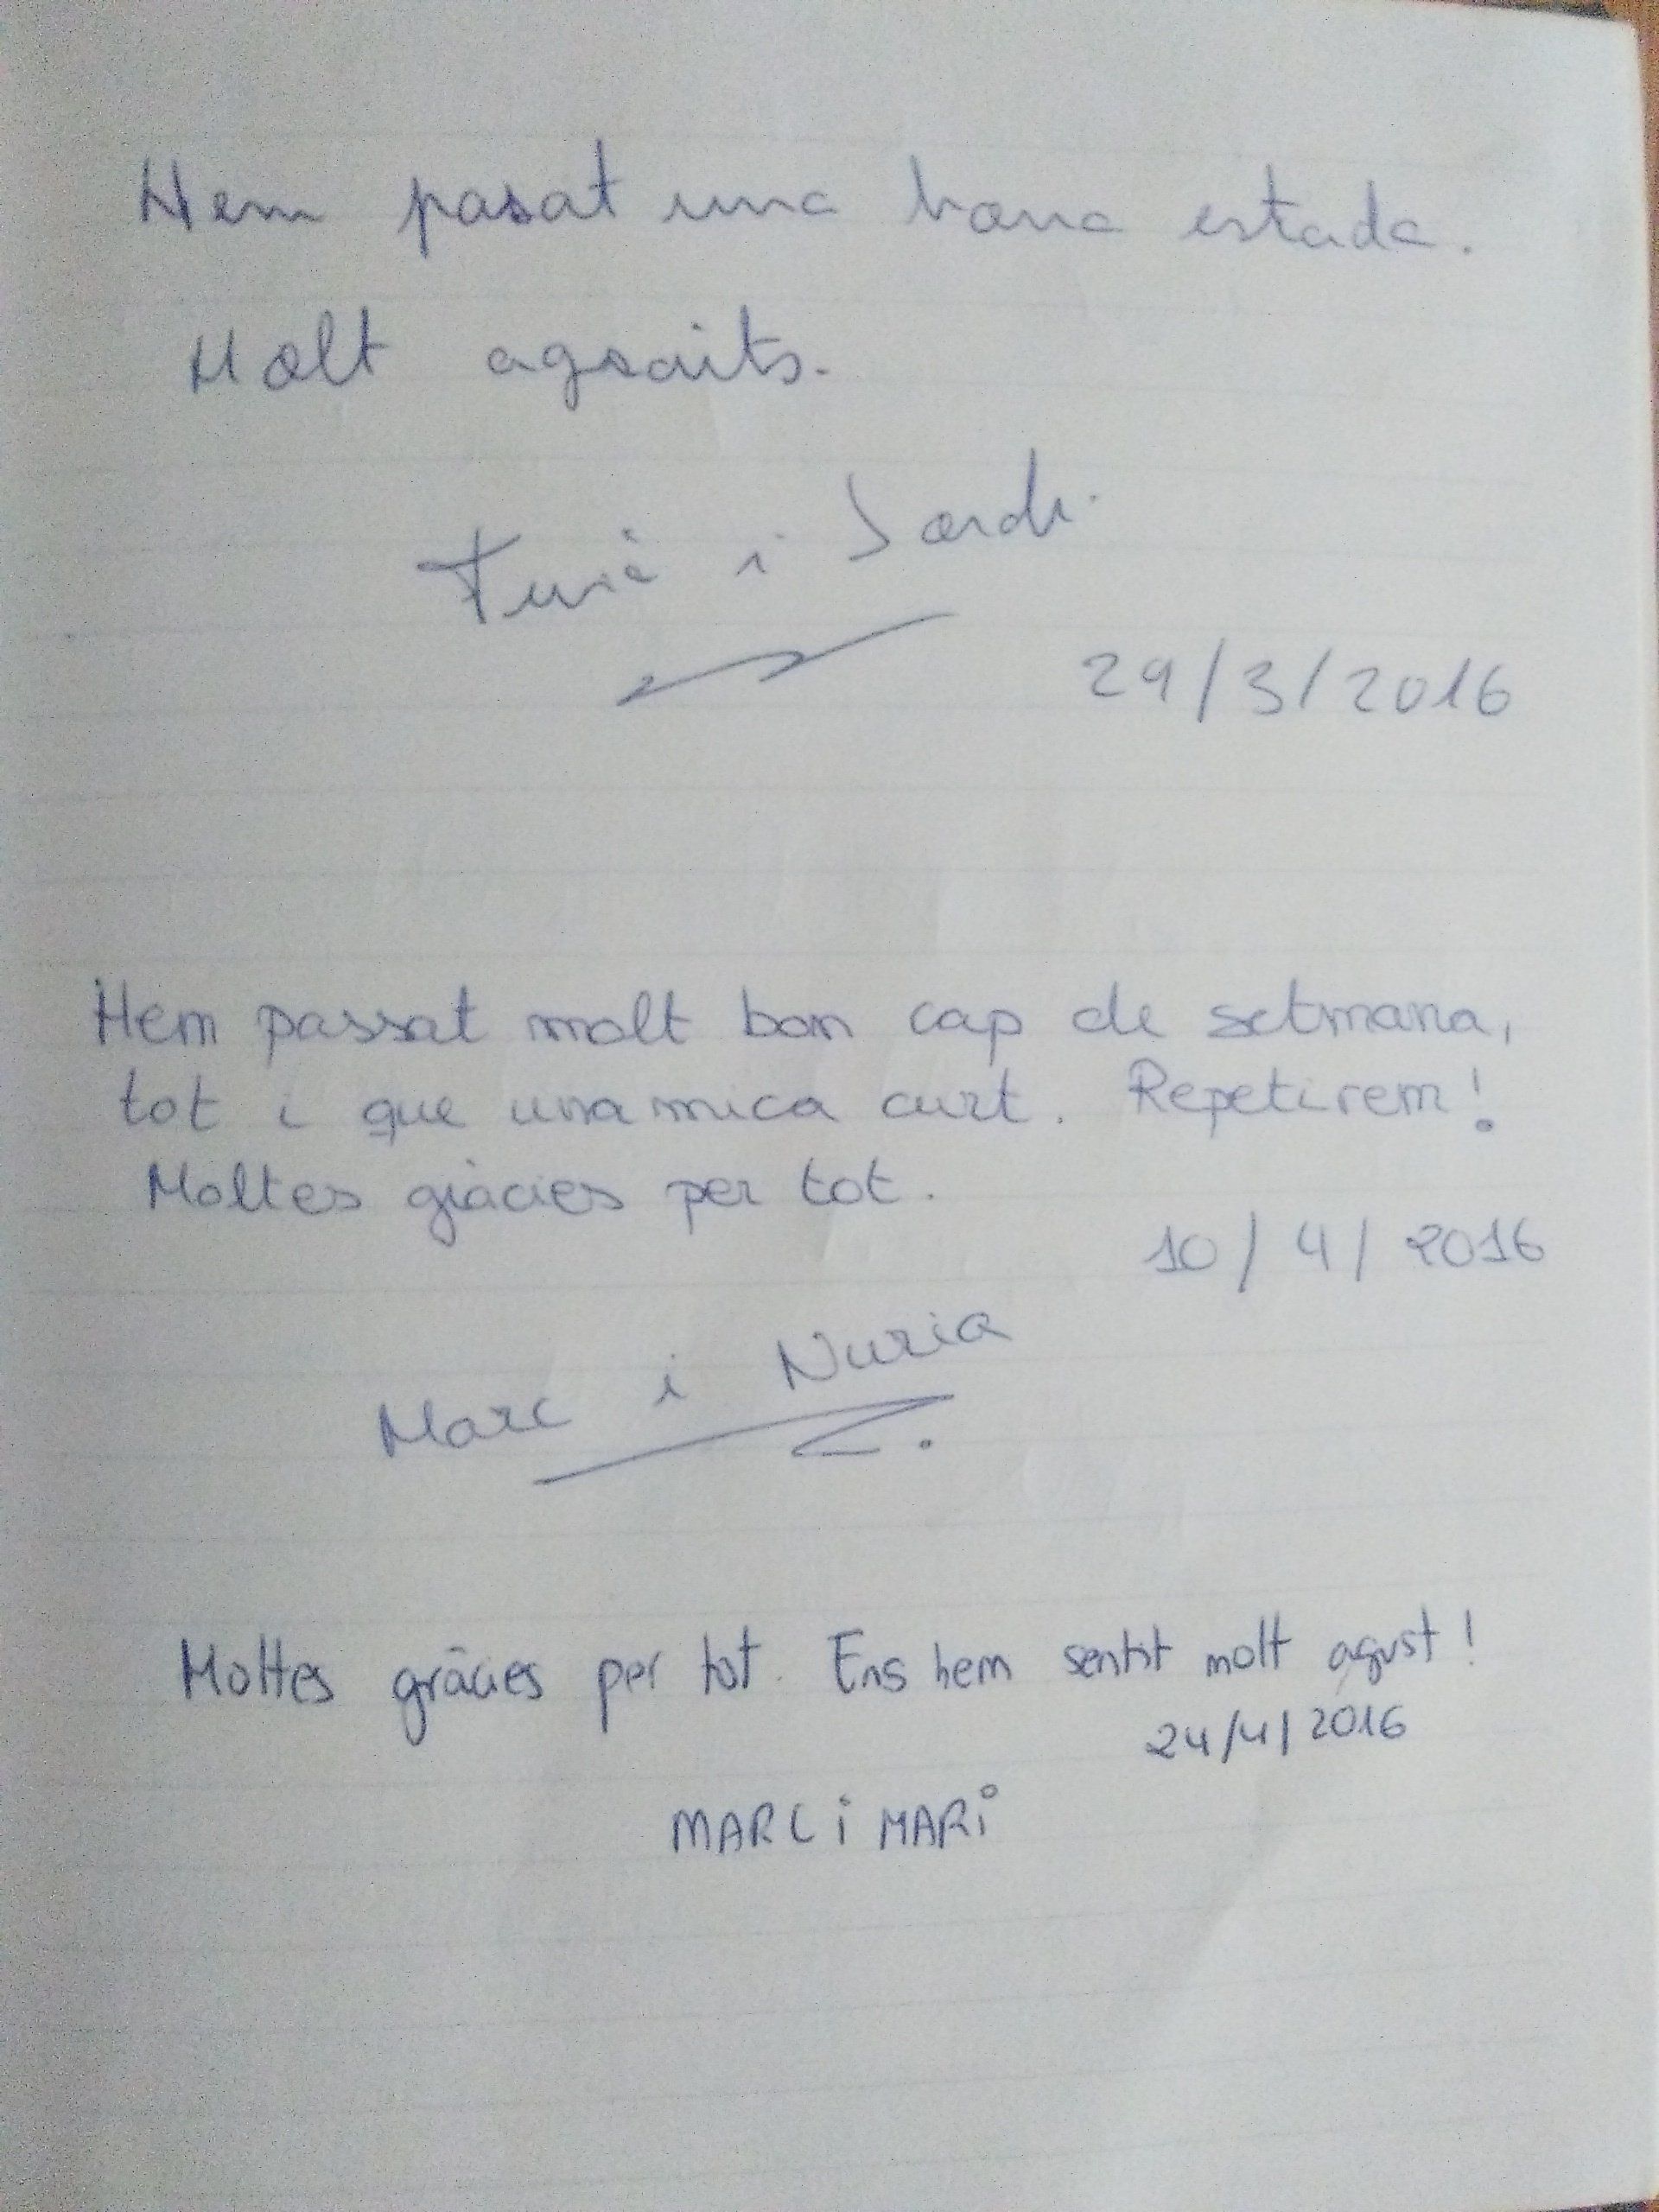 Hem pasat una bona estada.
Molt agraits.
i Jordi
29/3/2016
Hem passat molt bon cap de setmana,
tot i que una mica curt. Repetirem!
Moltes gràcies per tot.
10/4/2016
Marc i Nuria
Moltes gràcies per tot. Ens hem sentit molt agust!
24/4/2016
MARC i MARi